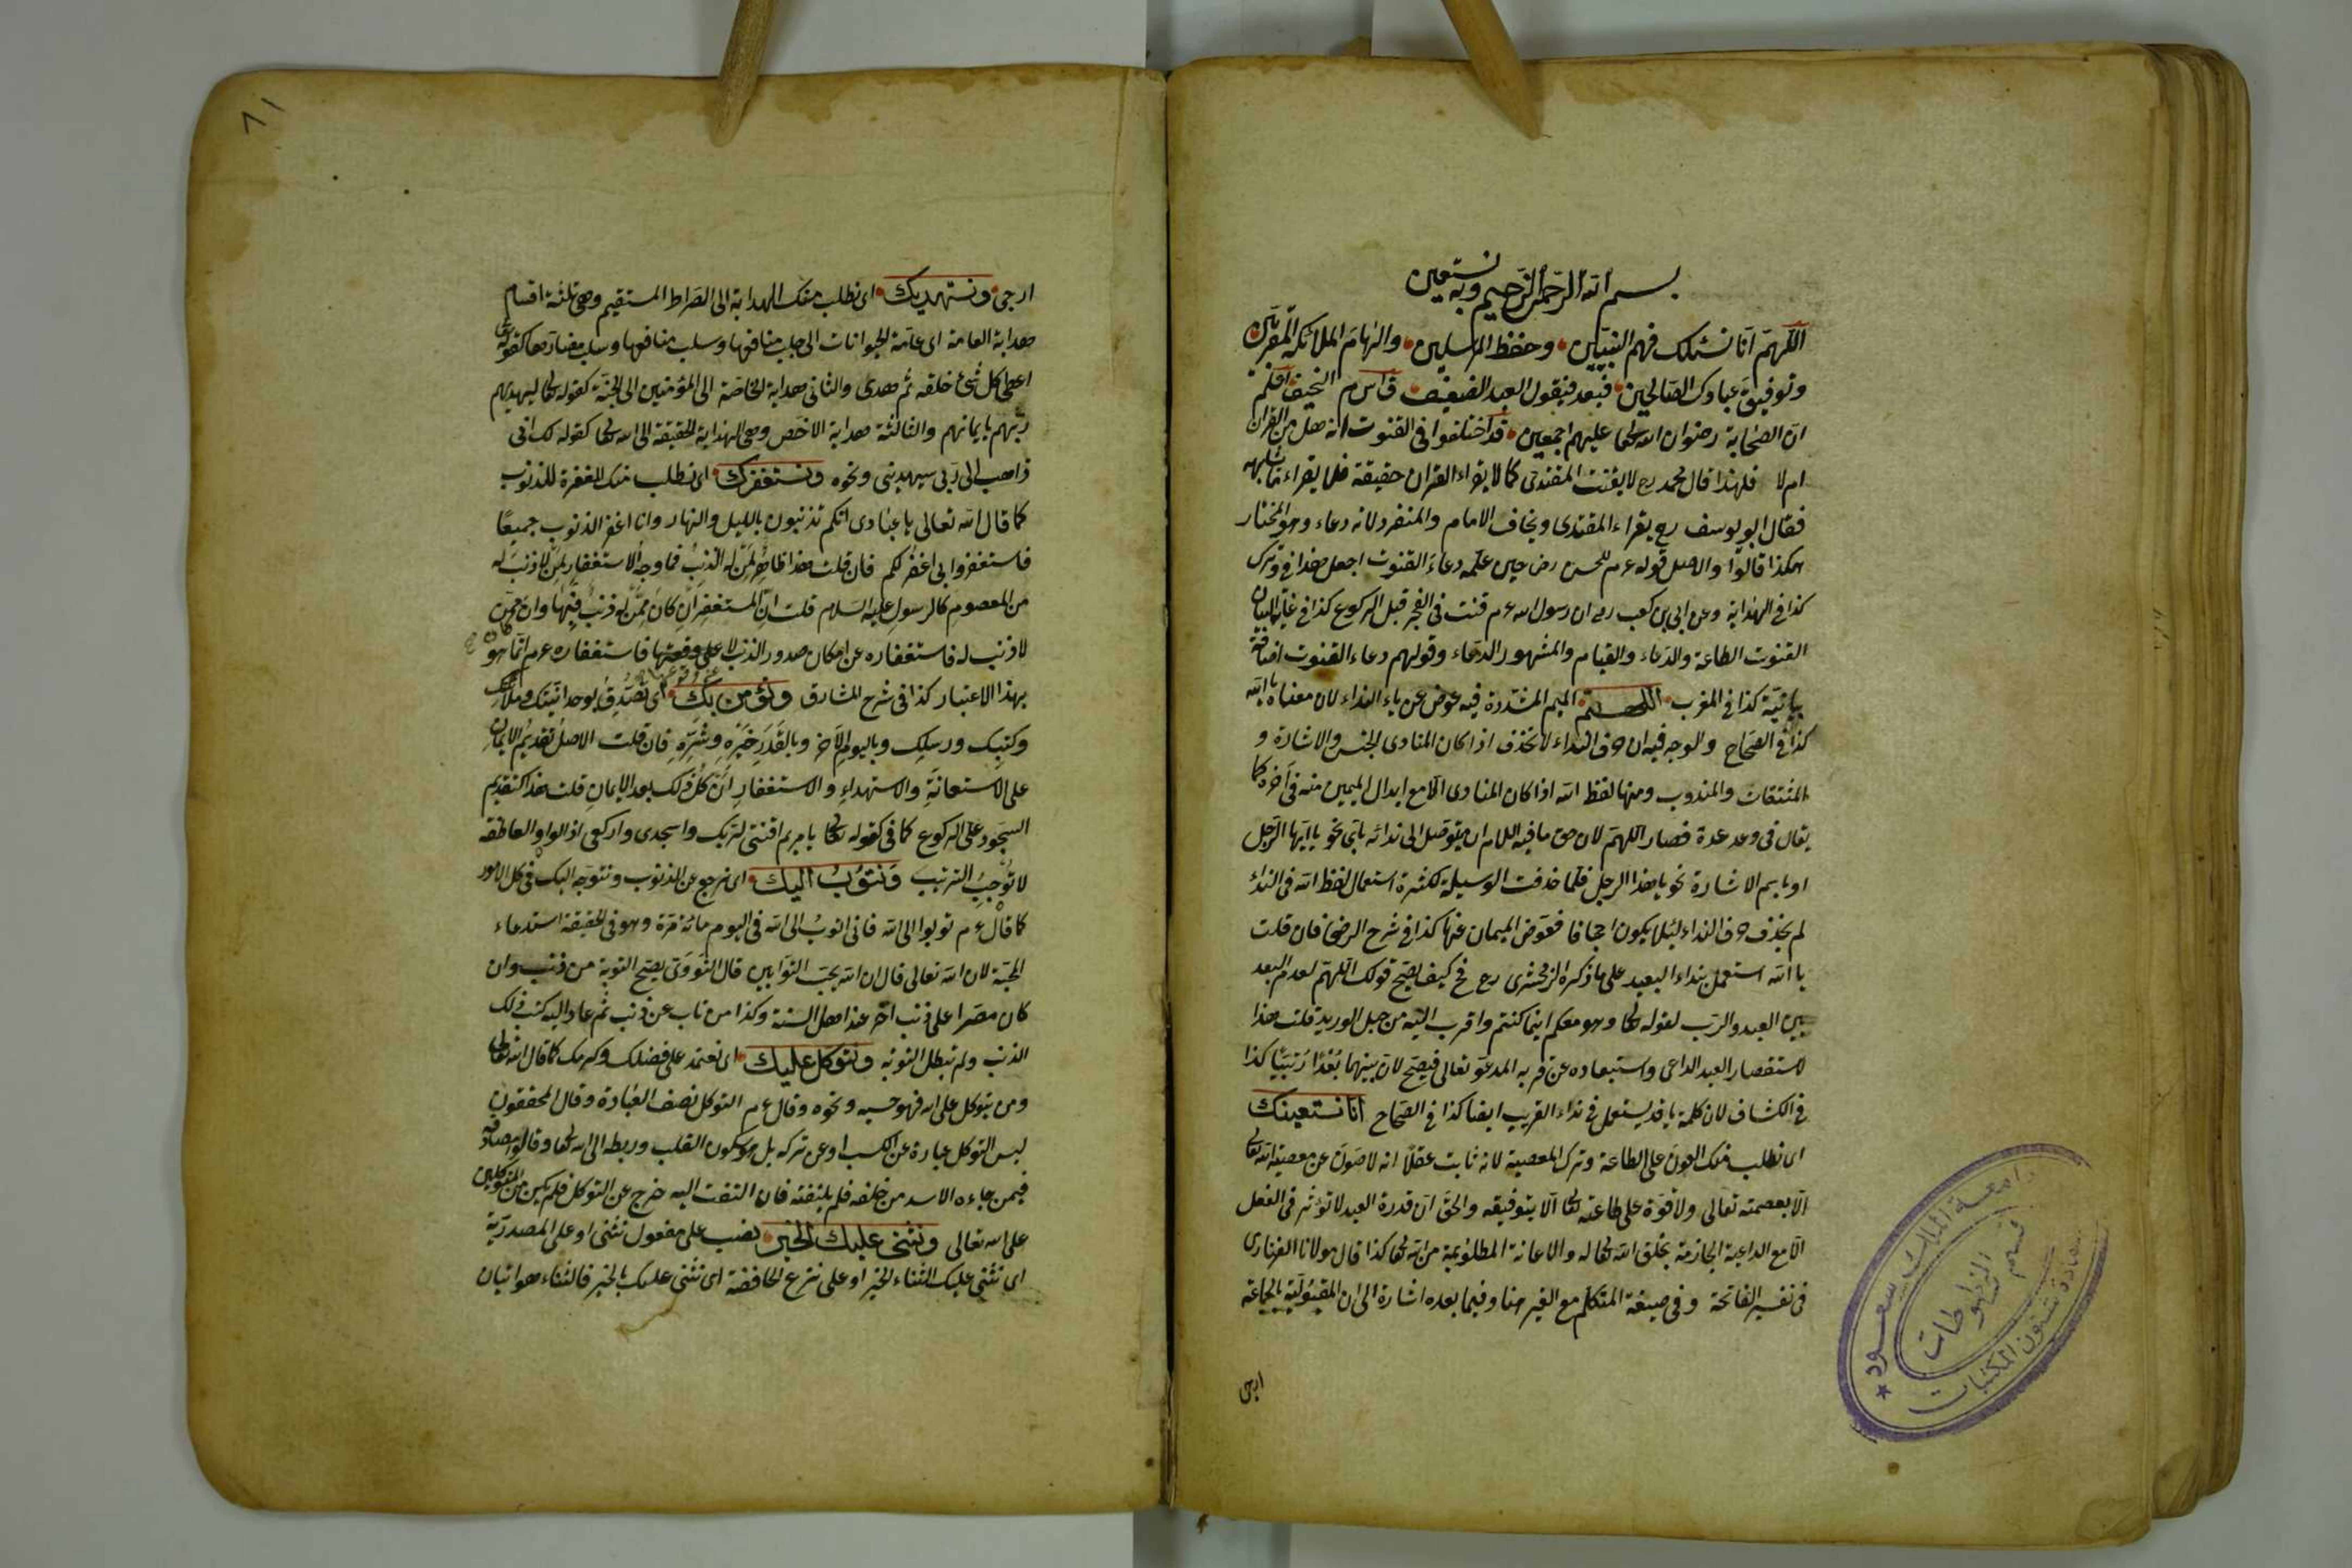 بسم الله الرحمن الرحيم وبه نستعين
اللهم انا نسئلك فهم النبيين وحفظ المرسلين والهام الملائكة المقربين
وتوفيق عبادك الصالحين فبعد فيقول العبد الضعيف النحيف
ان الصحابة رضوان الله تعا عليهم اجمعين قد اختلفوا فى القنوت انه هل من القران
ام لا فلهذا قال محمد رح لا يقنت المقتدى كما لا يقراء القران حقيقة فلا يقراء ما يشابهه
فقال ابو يوسف رح يقراء المقتدى ويخاف الامام والمنفرد لانه دعاء وهو المختار
هكذا قالوا والاصل قوله عم للحسن رض حين علمه دعاء القنوت اجعل هذا فى وترك
كذا فى الهداية وعن ابى بن كعب رض ان رسول الله عم قنت فى الفجر قبل الركوع كذا فى غاية البيان
القنوت الطاعة والدعاء والقيام والمشهور الدعاء وقولهم دعاء القنوت اضافة
بيانية كذا فى المغرب اللهم الميم المشددة فيه عوض عن ياء النداء لان معناه يا الله
كذا فى الصحاح والوجه فيه ان حرف النداء لا تحذف اذا كان المنادى الجنس والاشارة و
المشتقات والمندوب ومنها لفظ الله اذا كان المنادى الا مع ابدال الميمين منه فى آخره كما
يقال فى وعد عدة فصار اللهم لان حق ما فيه اللام ان يتوصل الى ندائه باى نحو يا ايها الرجل
او باسم الاشارة نحو يا هذا الرجل فلما حذفت الوسيلة لكثرة استعمال لفظ الله فى النداء
لم يحذف حرف النداء لئلا يكون اجحافا فعوض الميمان عنها كذا فى شرح الرضى فان قلت
يا الله استعمل بنداء البعيد على ما ذكره الزمخشرى رح فح كيف يصح قولك اللهم لعدم البعد
بين العبد والرب لقوله تعا وهو معكم اينما كنتم واقرب اليه من حبل الوريد قلت هذا
لاستقصار العبد الداعى واستبعاده عن قربه المدعو تعالى فيصح لان بينهما بُعْدًا رُتَبيًّا كذا
فى الكشاف لان كلمة يا قد يستعمل فى نداء القريب ايضا كذا فى الصحاح انا نستعينك
اى نطلب منك العون على الطاعة وترك المعصية لانه ثابت عقلا انه لاصون عن معصية الله تعا
الا بعصمته تعالى ولا قوة على طاعته تعا الا بتوفيقه والحق ان قدرة العبد لا تؤثر فى الفعل
الا مع الداعية الجازمة بخلق الله تعا له والاعانة المطلوبة من الله تعا كذا قال مولانا الفنارى
فى تفسير الفاتحة وفى صيغة المتكلم مع الغير هنا وفيما بعده اشارة الى ان المقبولية بالجماعة
ارجى
جامعة الملك سعود
قسم المخطوطات
عمادة شئون المكتبات
ارجى ونستهديك اى نطلب منك الهداية الى الصراط المستقيم وهى ثلثة اقسام
هداية العامة اى عامة الحيوانات الى جلب منافعها وسلب مضارها كقوله تعا
اعطى كل شئ خلقه ثم هدى والثانى هداية الخاصة الى المؤمنين الى الجنة كقوله تعا يهديهم
ربهم بايمانهم والثالثة هداية الاخص وهى الهداية الحقيقة الى الله تعا كقوله تعا انى
ذاهب الى ربى سيهدينى ونحوه ونستغفرك اى نطلب منك المغفرة للذنوب
كما قال الله تعالى يا عبادى انكم تذنبون بالليل والنهار وانا اغفر الذنوب جميعًا
فاستغفروا بى اغفر لكم فان قلت هذا ظاهر لمن له الذنب فما وجه الاستغفار لمن لا ذنب له
من المعصوم كالرسول عليه السلام قلت ان المستغفر ان كان ممن له ذنب فبها وان ممن
لا ذنب له فاستغفاره عن امكان صدور الذنب لا على وقوعها فاستغفاره عم انما هو
بهذا الاعتبار كذا فى شرح المشارق ونؤمن بك اى نصدق بوحدانيتك وملائكتك
وكتبك ورسلك وباليوم الآخر وبالقدر خيره وشره فان قلت الاصل تقديم الايمان
على الاستعانة والاستهداء والاستغفار ان كل ذلك بعد الايمان قلت هذا كتقديم
السجود على الركوع كما فى كقوله تعا يا مريم اقنتى لربك واسجدى واركعى اذ الواو العاطفة
لا توجب الترتيب ونتوب اليك اى نرجع عن الذنوب ونتوجه اليك فى كل الامور
كما قال عم توبوا الى الله فانى اتوب الى الله فى اليوم مائة مرة وهو فى الحقيقة استدعاء
المحبة لان الله تعالى قال ان الله يحب التوابين قال النووى يصح التوبة من ذنب وان
كان مصرا على ذنب آخر عند اهل السنة وكذا من تاب عن ذنب ثم عاد اليه كتب ذلك
الذنب ولم تبطل التوبة ونتوكل عليك اى نعتمد على فضلك وكرمك كما قال الله تعالى
ومن يتوكل على الله فهو حسبه ونحوه وقال عم التوكل نصف العبادة وقال المحققون
ليس التوكل عبارة عن الكسب او عن تركه بل هو سكون القلب وربطه الى الله تعا وقالوا مصداقه
فيمن جاءه الاسد من خلفه فلم يلتفته فان التفت اليه خرج عن التوكل فلم يكن من المتوكلين
على الله تعالى ونثنى عليك الخير نصب على مفعول نثنى او على المصدرية
اى نثنى عليك الثناء الخير او على نزع الخافضة اى نثنى عليك بالخير فالثناء هو اتيان